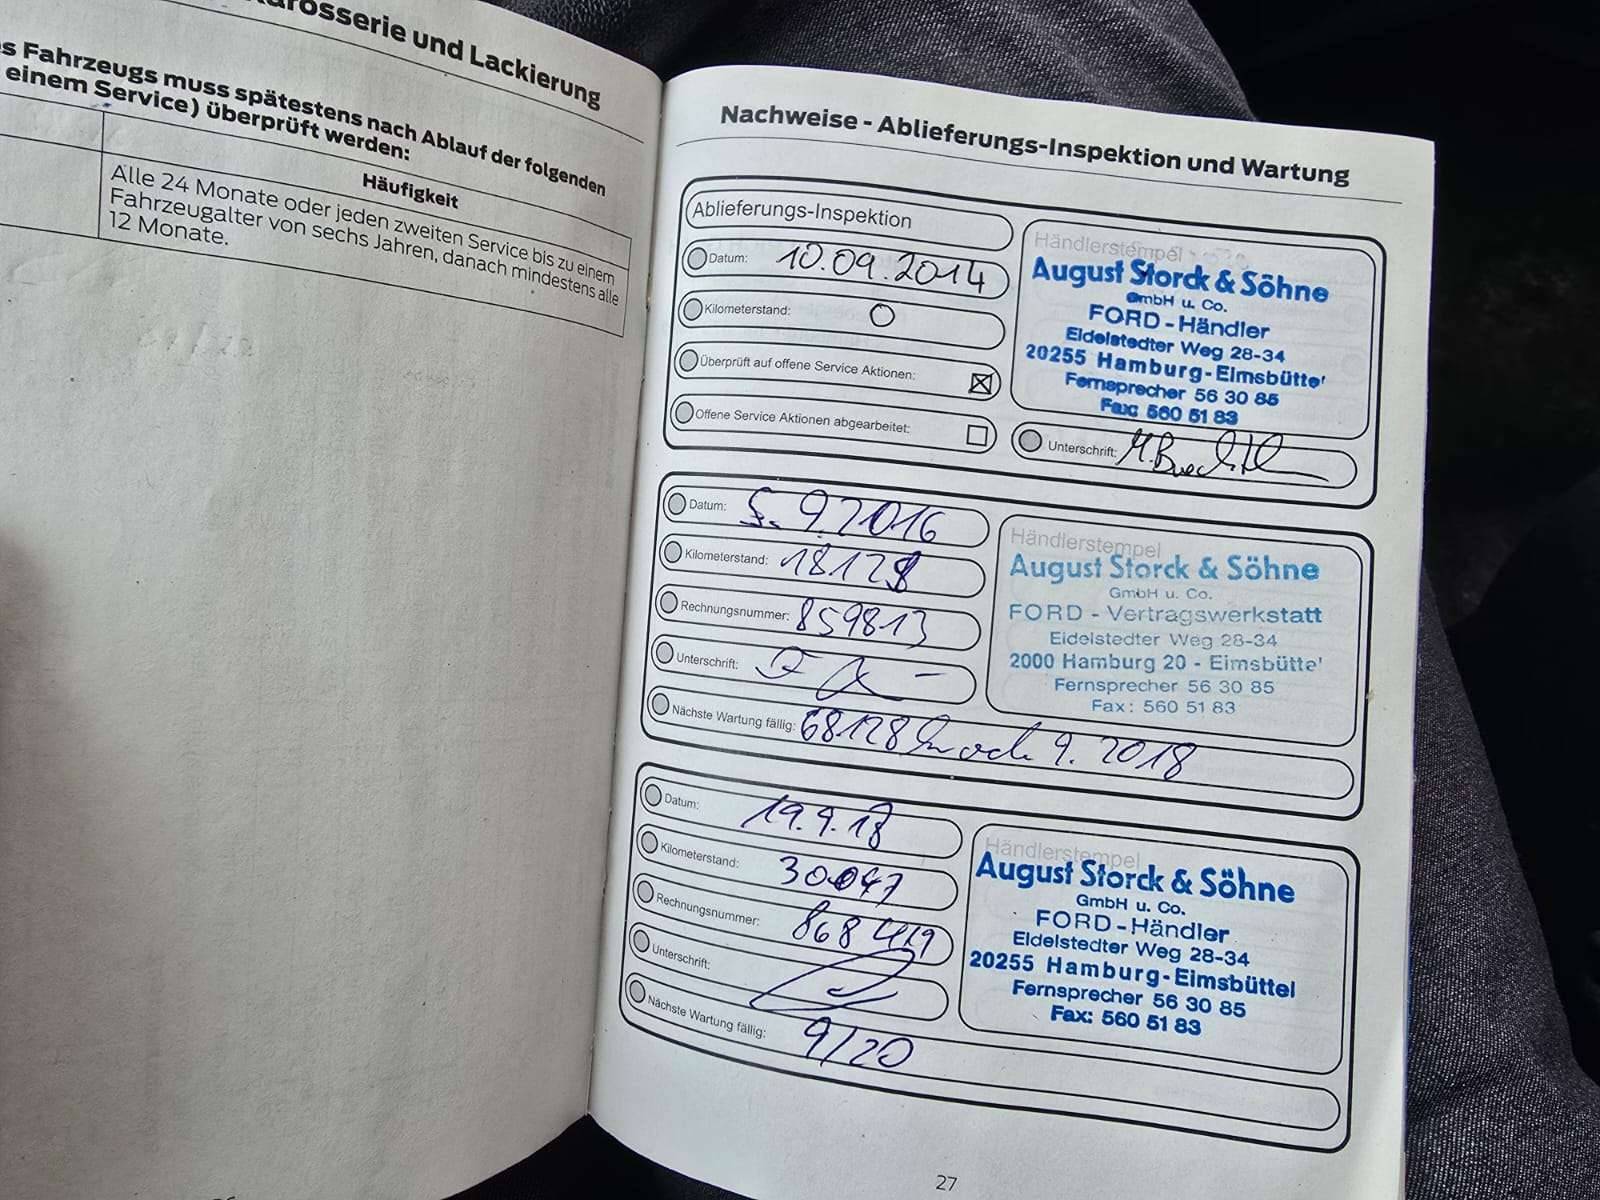 Karosserie und Lackierung
s Fahrzeugs muss spätestens nach Ablauf der folgenden
einem Service) überprüft werden:
Häufigkeit
Alle 24 Monate oder jeden zweiten Service bis zu einem
Fahrzeugalter von sechs Jahren, danach mindestens alle
12 Monate.
Nachweise - Ablieferungs-Inspektion und Wartung
Ablieferungs-Inspektion
Datum: 10.09.2014
Kilometerstand: 0
Überprüft auf offene Service Aktionen:
Offene Service Aktionen abgearbeitet:
Händlerstempel
August Storck & Söhne
GmbH u. Co.
FORD - Händler
Eidelstedter Weg 28-34
20255 Hamburg-Eimsbütte
Fernsprecher 56 30 85
Fax: 560 51 83
Unterschrift:
Datum: 5. 9.2016
Kilometerstand: 18128
Rechnungsnummer: 859813
Unterschrift:
Nächste Wartung fällig: 68128 9. 2018
Händlerstempel
August Storck & Söhne
GmbH u. Co.
FORD - Vertragswerkstatt
Eidelstedter Weg 28-34
2000 Hamburg 20 - Eimsbütte
Fernsprecher 56 30 85
Fax: 560 51 83
Datum: 19.9.18
Kilometerstand: 30047
Rechnungsnummer: 868419
Unterschrift:
Nächste Wartung fällig: 9/20
Händlerstempel
August Storck & Söhne
GmbH u. Co.
FORD - Händler
Eidelstedter Weg 28-34
20255 Hamburg-Eimsbüttel
Fernsprecher 56 30 85
Fax: 560 51 83
27